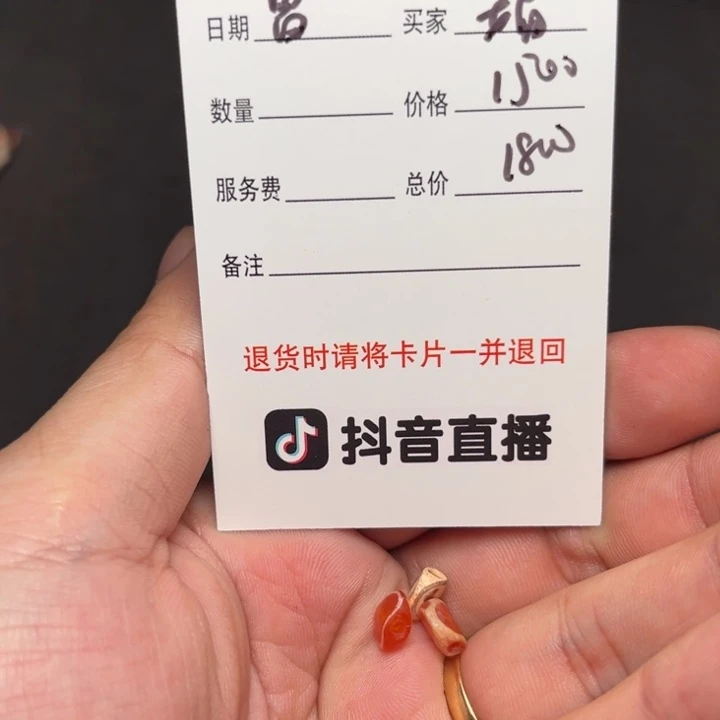 日期 买家
数量 价格 1500
服务费 总价 1800
备注
退货时请将卡片一并退回
抖音直播